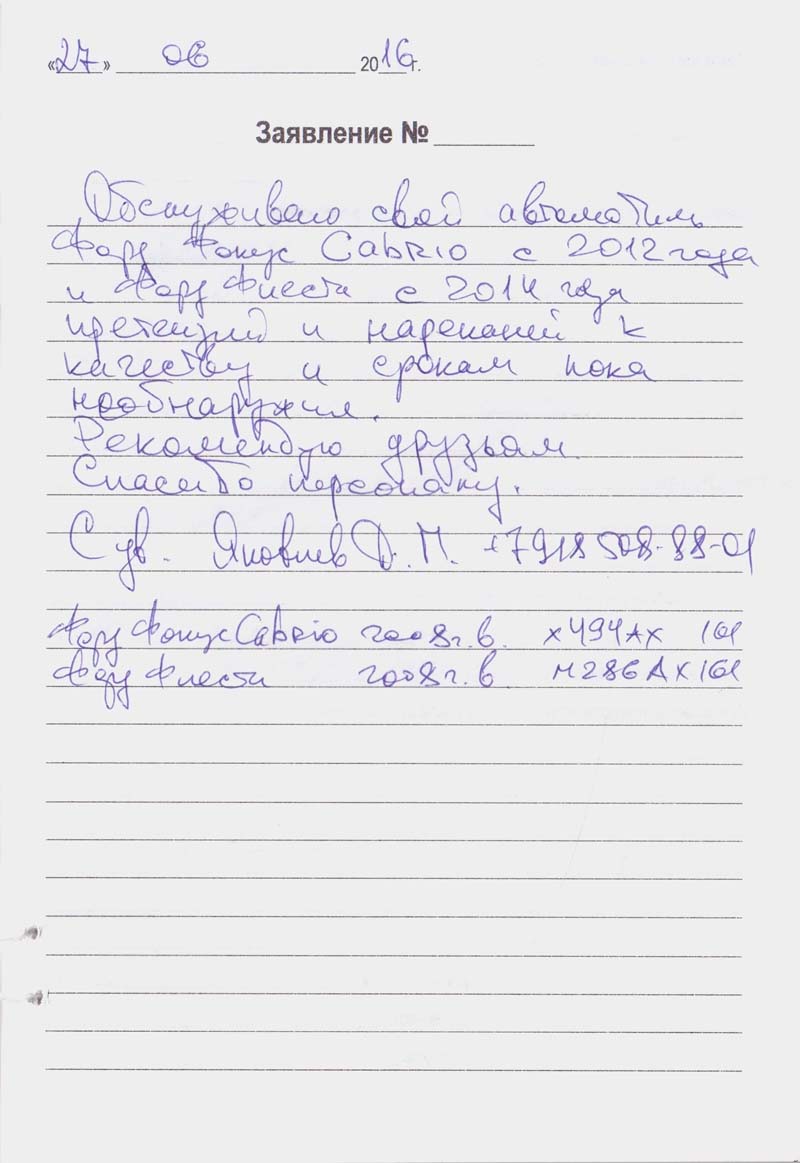 «27» 06 2016г.
Заявление №
Обслуживаю свой автомобиль
Форд Фокус Cabrio с 2012 года
и Форд Фиеста с 2014 года
претензий и нареканий к
качеству и срокам пока
необнаружил.
Рекомендую друзьям.
Спасибо персоналу.
С ув. Яковлев Д.М. +7918 508-88-01
Форд Фокус Cabrio 2008г.в. х494АХ 161
Форд Фиеста 2008г.в. м286АХ161